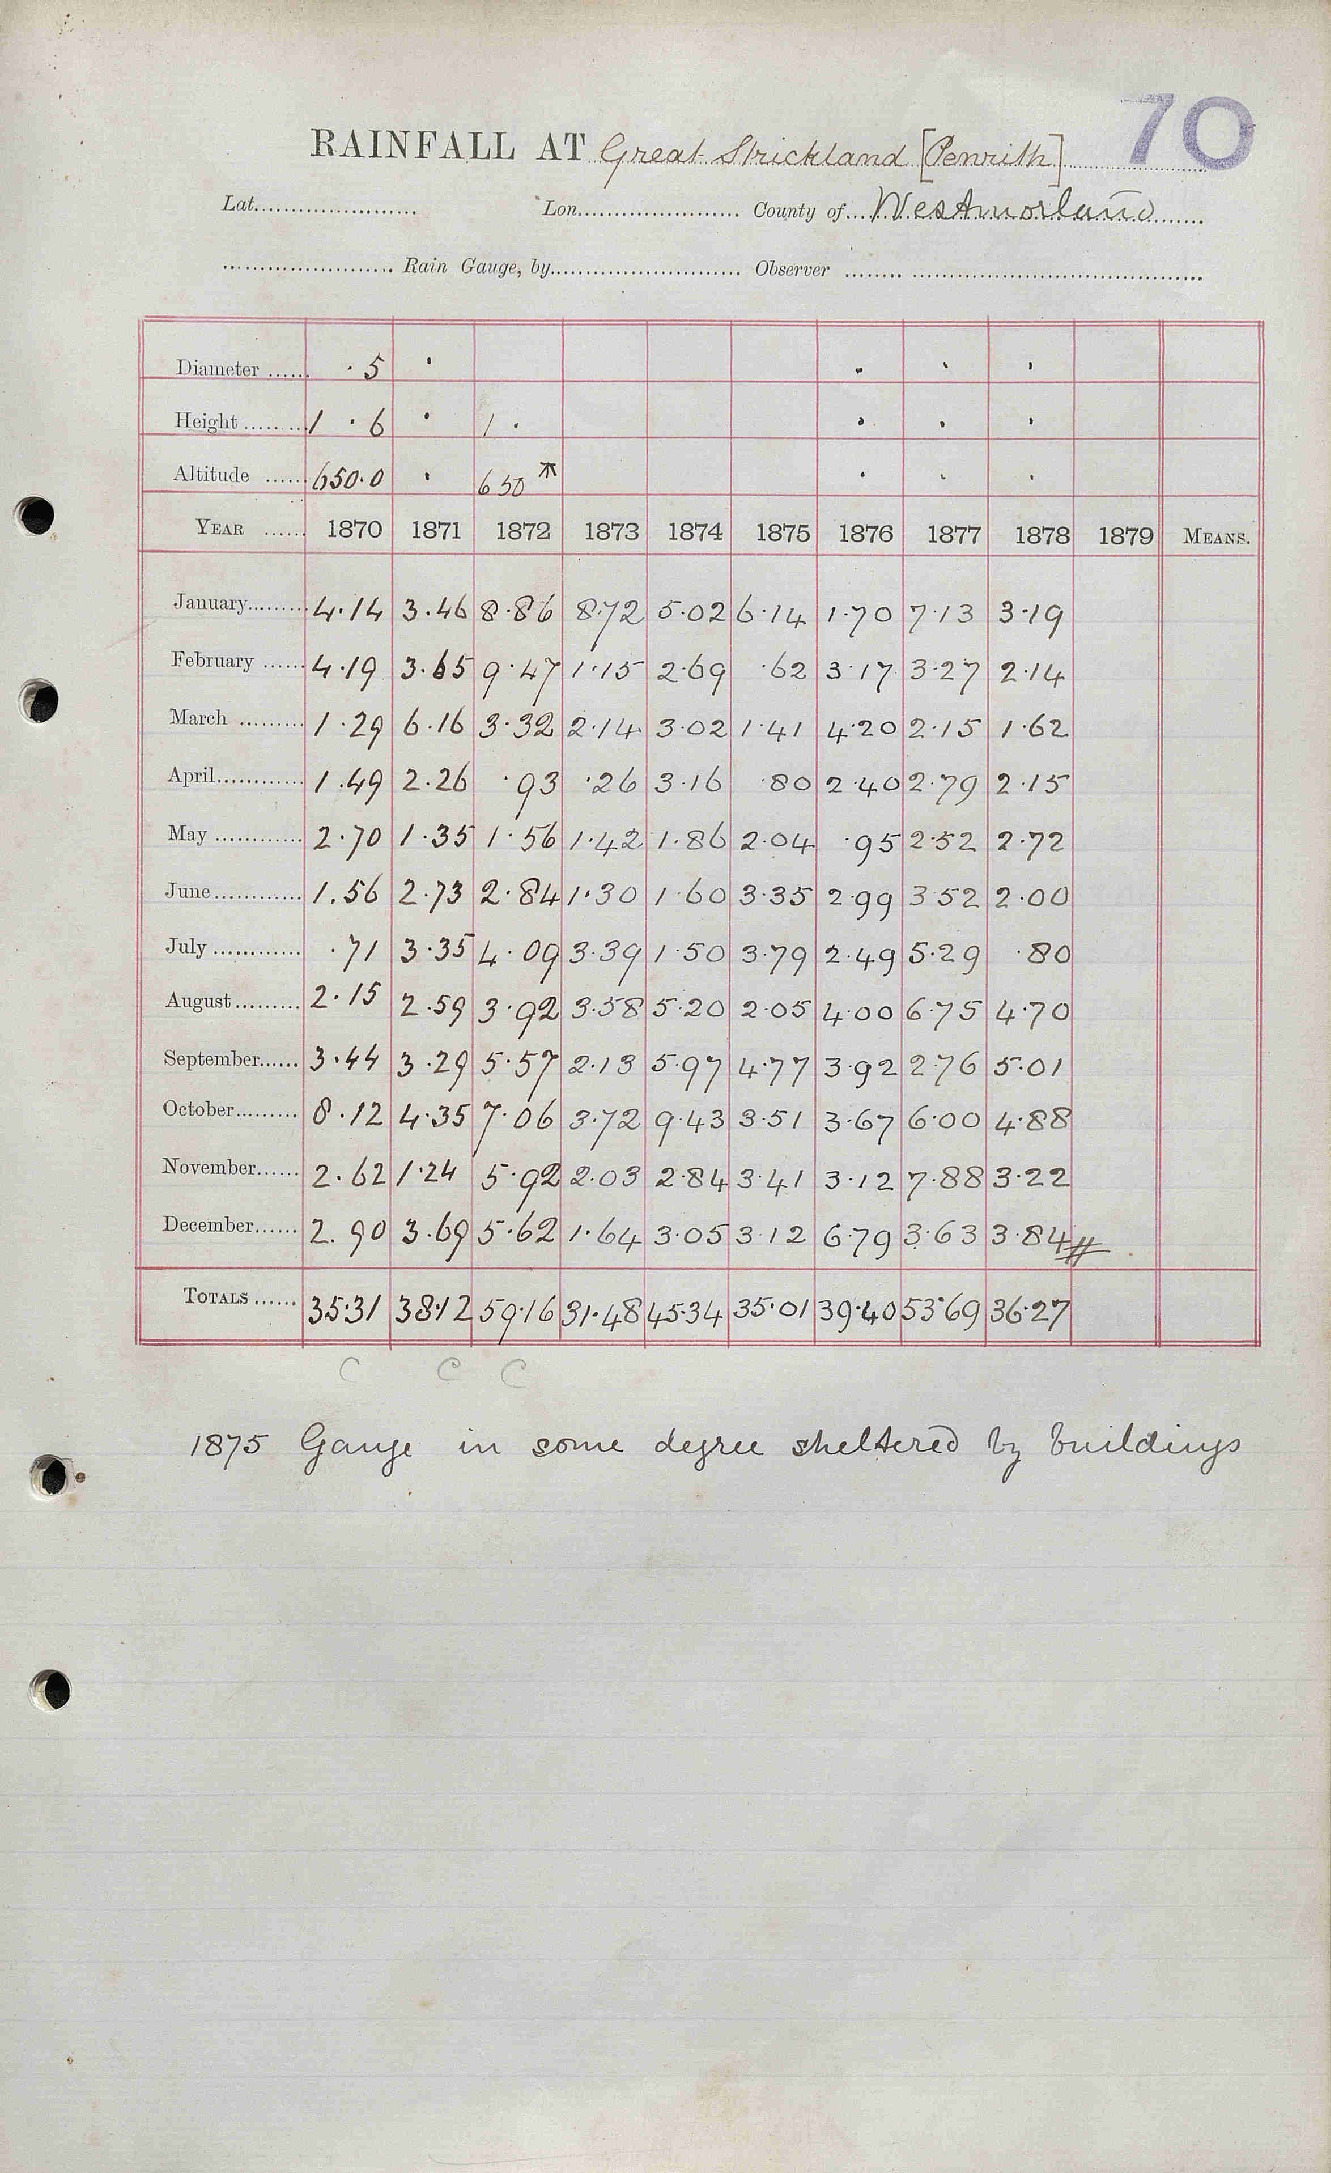 70
RAINFALL AT Great Strickland [Penrith]
Lat. Lon. County of Westmorland
Rain Gauge, by Observer
Diameter ...... ·5 · · · ·
Height ...... 1 ·6 · 1 · · · ·
Altitude ...... 650·0 · 650 · · ·
YEAR ...... 1870 1871 1872 1873 1874 1875 1876 1877 1878 1879 MEANS.
January 4·14 3·46 8·86 8·72 5·02 6·14 1·70 7·13 3·19
February 4·19 3·65 9·47 1·15 2·69 ·62 3·17 3·27 2·14
March 1·29 6·16 3·32 2·14 3·02 1·41 4·20 2·15 1·62
April 1·49 2·26 ·93 ·26 3·16 ·80 2·40 2·79 2·15
May 2·70 1·35 1·56 1·42 1·86 2·04 ·95 2·52 2·72
June 1·56 2·73 2·84 1·30 1·60 3·35 2·99 3·52 2·00
July ·71 3·35 4·09 3·39 1·50 3·79 2·49 5·29 ·80
August 2·15 2·59 3·92 3·58 5·20 2·05 4·00 6·75 4·70
September 3·44 3·29 5·57 2·13 5·97 4·77 3·92 2·76 5·01
October 8·12 4·35 7·06 3·72 9·43 3·51 3·67 6·00 4·88
November 2·62 1·24 5·92 2·03 2·84 3·41 3·12 7·88 3·22
December 2·90 3·69 5·62 1·64 3·05 3·12 6·79 3·63 3·84
TOTALS 35·31 38·12 59·16 31·48 45·34 35·01 39·40 53·69 36·27
C C C
1875 Gauge in some degree sheltered by buildings